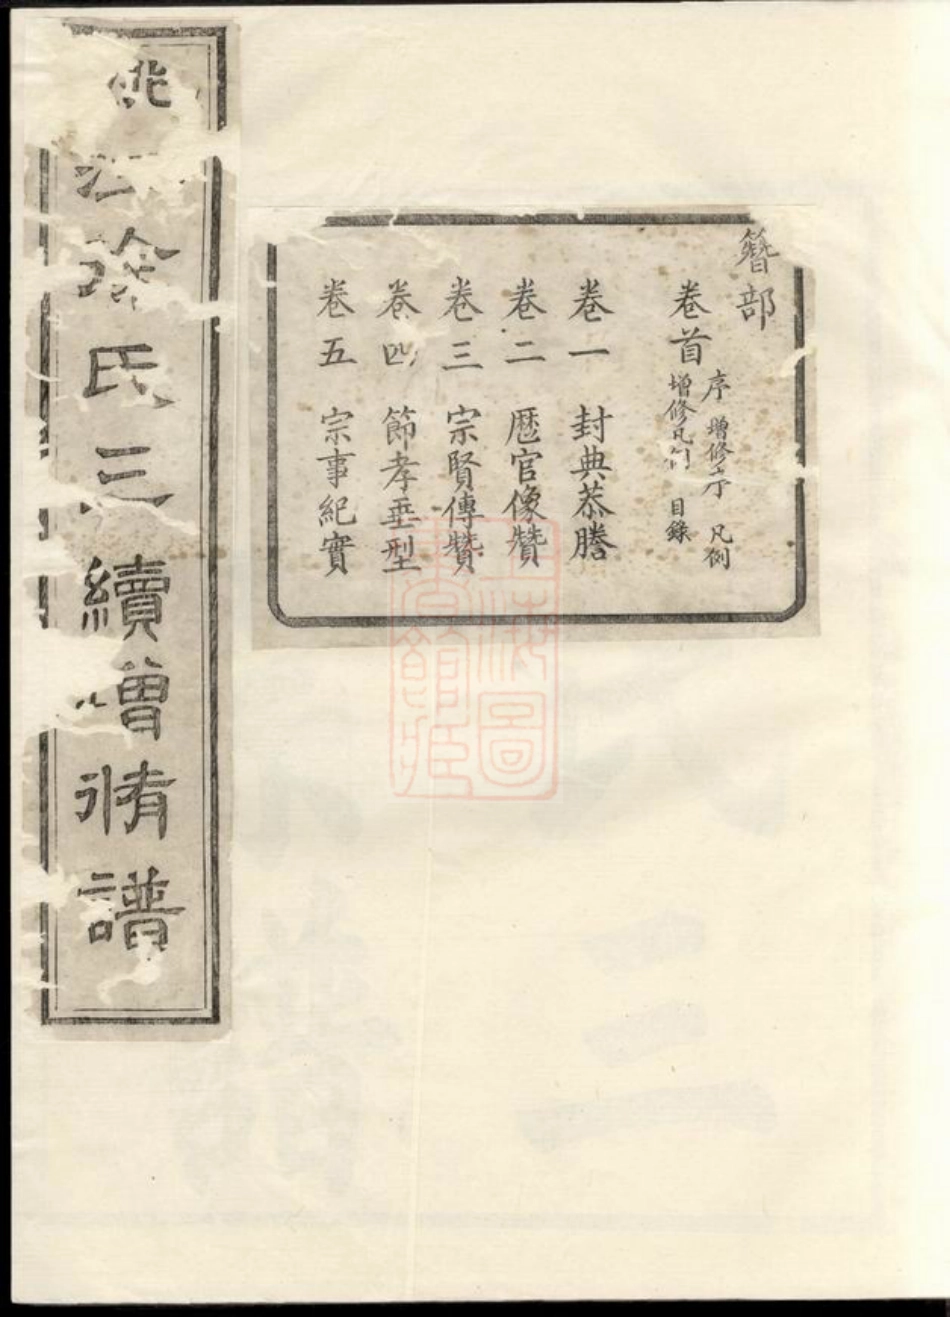 簪部
卷首 序 增修序 凡例
增修凡例 目錄
卷一 封典恭謄
卷二 歷官像贊
卷三 宗賢傳贊
卷四 節孝垂型
卷五 宗事紀實
徐氏三續增脩譜
上海圖書館藏